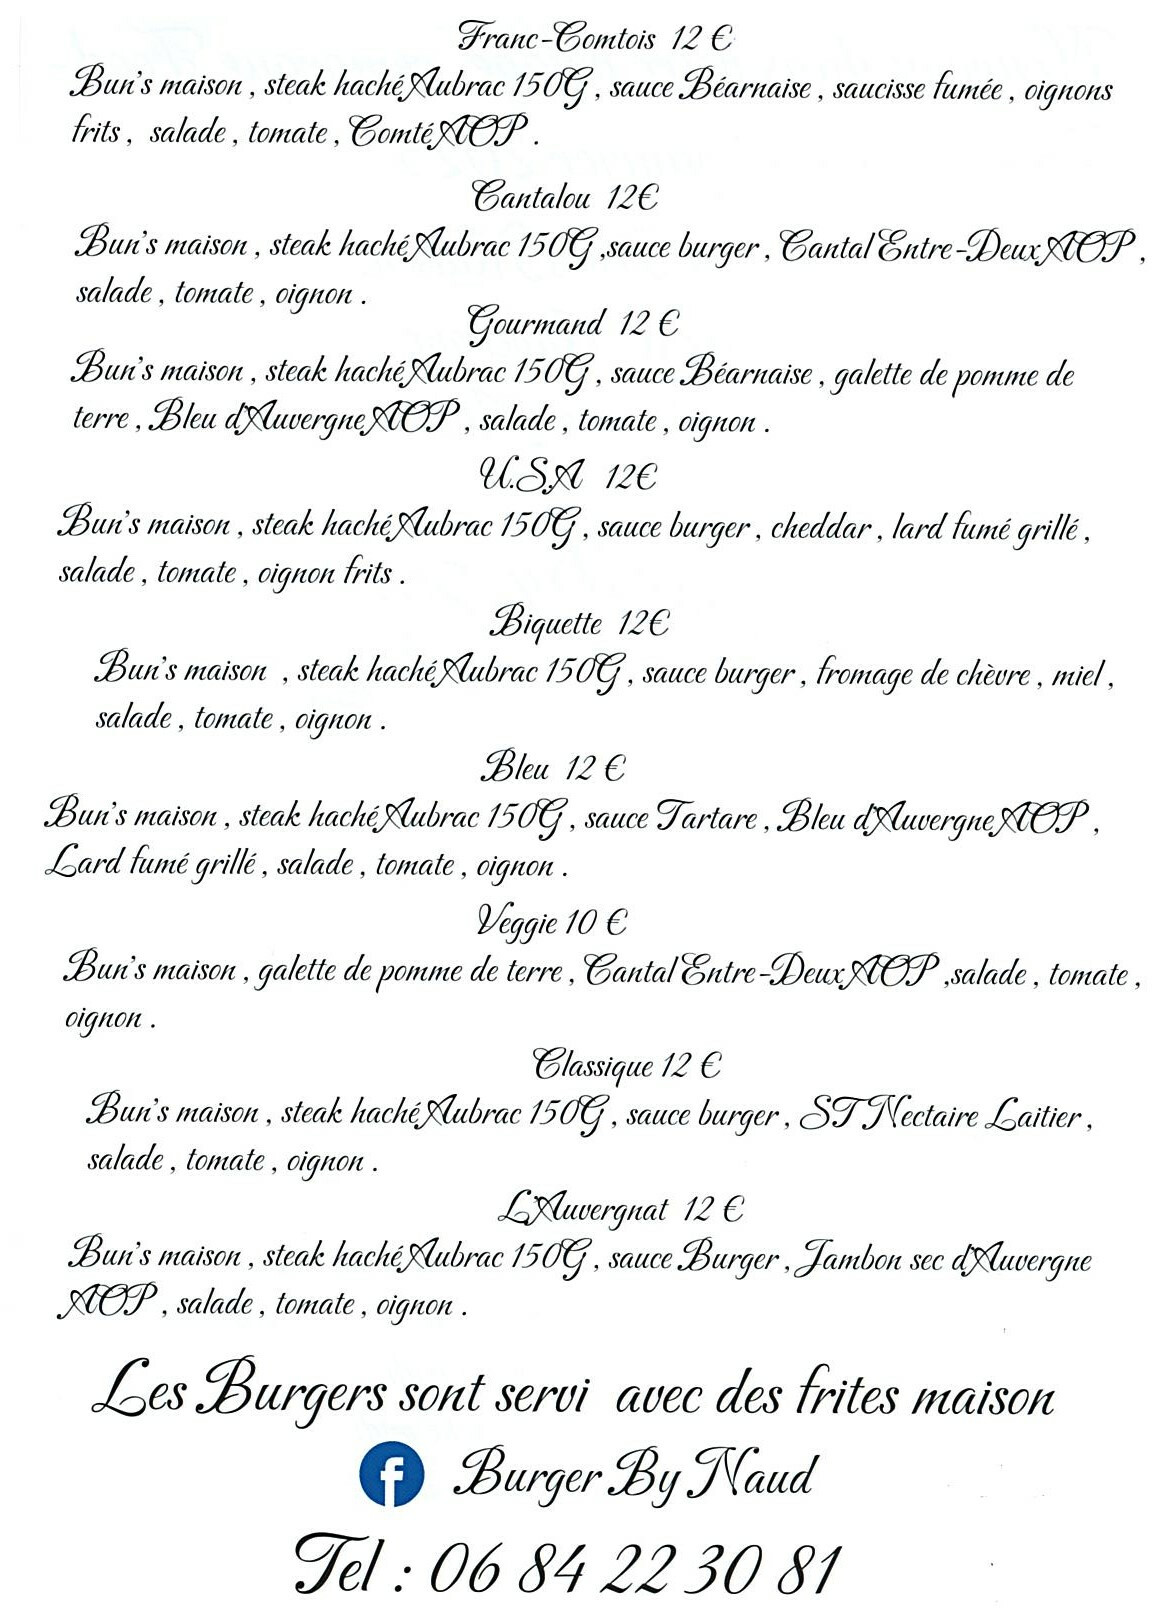 Franc-Comtois 12 €
Bun's maison , steak haché Aubrac 150G , sauce Béarnaise , saucisse fumée , oignons
frits , salade , tomate , Comté AOP .
Cantalou 12€
Bun's maison , steak haché Aubrac 150G ,sauce burger , Cantal Entre-Deux AOP ,
salade , tomate , oignon .
Gourmand 12 €
Bun's maison , steak haché Aubrac 150G , sauce Béarnaise , galette de pomme de
terre , Bleu d'Auvergne AOP , salade , tomate , oignon .
U.S.A 12€
Bun's maison , steak haché Aubrac 150G , sauce burger , cheddar , lard fumé grillé ,
salade , tomate , oignon frits .
Biquette 12€
Bun's maison , steak haché Aubrac 150G , sauce burger , fromage de chèvre , miel ,
salade , tomate , oignon .
Bleu 12 €
Bun's maison , steak haché Aubrac 150G , sauce Tartare , Bleu d'Auvergne AOP ,
Lard fumé grillé , salade , tomate , oignon .
Veggie 10 €
Bun's maison , galette de pomme de terre , Cantal Entre-Deux AOP ,salade , tomate ,
oignon .
Classique 12 €
Bun's maison , steak haché Aubrac 150G , sauce burger , ST Nectaire Laitier ,
salade , tomate , oignon .
L'Auvergnat 12 €
Bun's maison , steak haché Aubrac 150G , sauce Burger , Jambon sec d'Auvergne
AOP , salade , tomate , oignon .
Les Burgers sont servi avec des frites maison
f Burger By Naud
Tel : 06 84 22 30 81